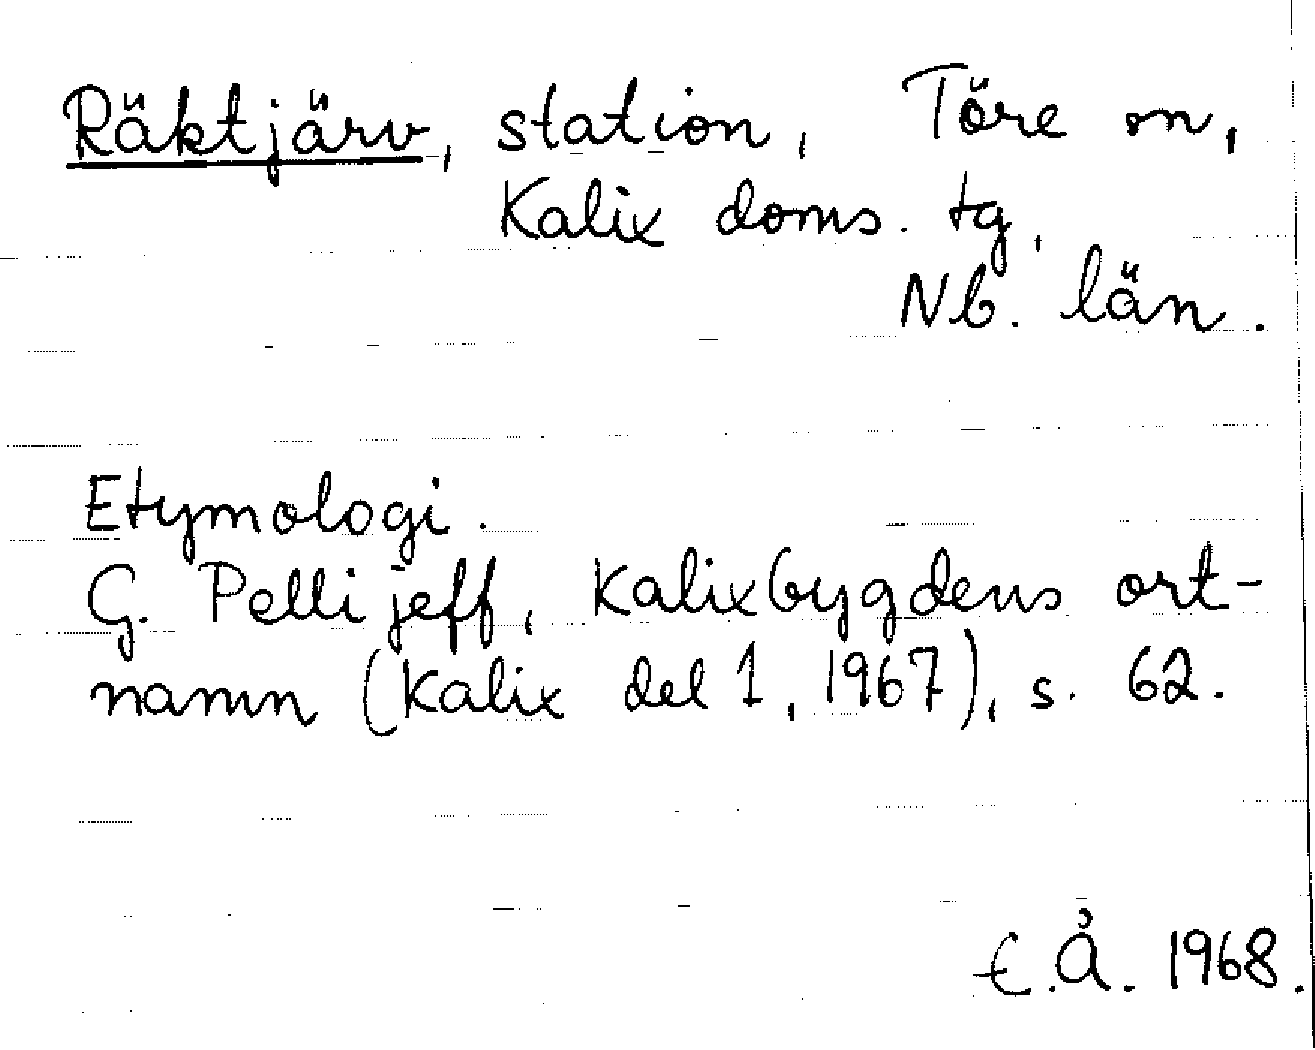 Räktjärv, station, Töre sn,
Kalix doms. tg,
Nb. län.
Etymologi.
G. Pellijeff, Kalixbygdens ort-
namn (Kalix del 1, 1967), s. 62.
E.Å. 1968.